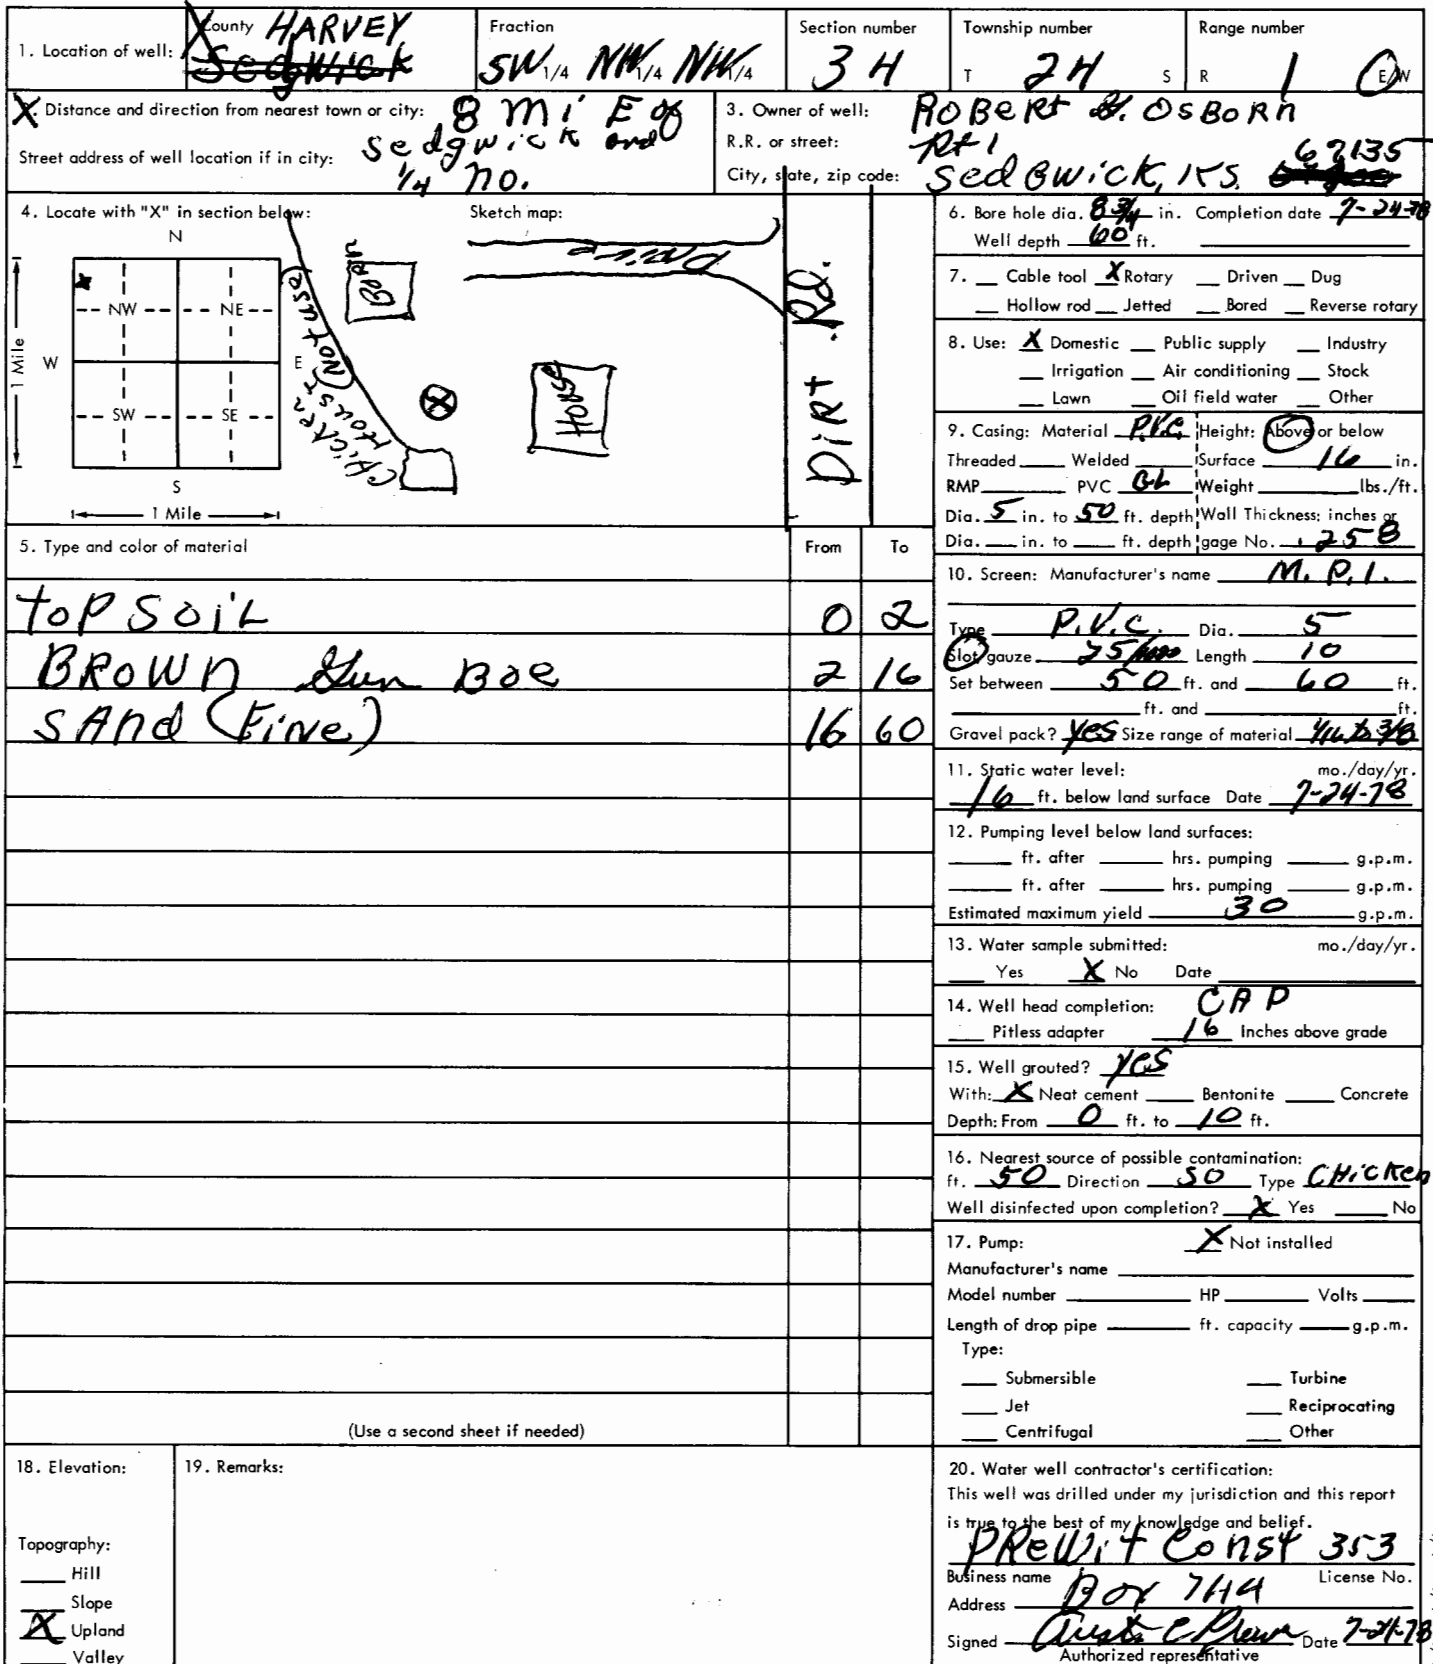 1. Location of well:
County HARVEY
Sedgwick
Fraction
SW 1/4 NW 1/4 NW 1/4
Section number
34
Township number
T 24 S
Range number
R 1 E/W
X. Distance and direction from nearest town or city: 8 mi E of
Sedgwick and
1/4 no.
Street address of well location if in city:
3. Owner of well: ROBERT H. OSBORN
R.R. or street: Rt 1
City, state, zip code: Sedgwick, KS. 67135
4. Locate with "X" in section below:
N
NW NE
W E
SW SE
S
1 Mile
1 Mile
Sketch map:
Drive
Barn
House
Chicken House (Not use)
X
DIRT RD.
5. Type and color of material From To
TOP SOIL 0 2
BROWN Gum Boe 2 16
SAND (FINE) 16 60
(Use a second sheet if needed)
6. Bore hole dia. 8 3/4 in. Completion date 7-24-78
Well depth 60 ft.
7. Cable tool X Rotary Driven Dug
Hollow rod Jetted Bored Reverse rotary
8. Use: X Domestic Public supply Industry
Irrigation Air conditioning Stock
Lawn Oil field water Other
9. Casing: Material P.V.C. Height: Above or below
Threaded Welded Surface 16 in.
RMP PVC GL Weight lbs./ft.
Dia. 5 in. to 50 ft. depth Wall Thickness: inches or
Dia. in. to ft. depth gage No. .258
10. Screen: Manufacturer's name M.P.I.
Type P.V.C. Dia. 5
Slot gauze 25/1000 Length 10
Set between 50 ft. and 60 ft.
ft. and ft.
Gravel pack? Yes Size range of material 1/16 to 3/8
11. Static water level: mo./day/yr.
16 ft. below land surface Date 7-24-78
12. Pumping level below land surfaces:
ft. after hrs. pumping g.p.m.
ft. after hrs. pumping g.p.m.
Estimated maximum yield 30 g.p.m.
13. Water sample submitted: mo./day/yr.
Yes X No Date
14. Well head completion: CAP
Pitless adapter 16 Inches above grade
15. Well grouted? Yes
With: X Neat cement Bentonite Concrete
Depth: From 0 ft. to 10 ft.
16. Nearest source of possible contamination:
ft. 50 Direction SO Type CHICKEN
Well disinfected upon completion? X Yes No
17. Pump: X Not installed
Manufacturer's name
Model number HP Volts
Length of drop pipe ft. capacity g.p.m.
Type:
Submersible Turbine
Jet Reciprocating
Centrifugal Other
18. Elevation:
Topography:
Hill
Slope
X Upland
Valley
19. Remarks:
20. Water well contractor's certification:
This well was drilled under my jurisdiction and this report
is true to the best of my knowledge and belief.
PRewit Const 353
Business name License No.
Address Box 744
Signed Date 7-24-78
Authorized representative